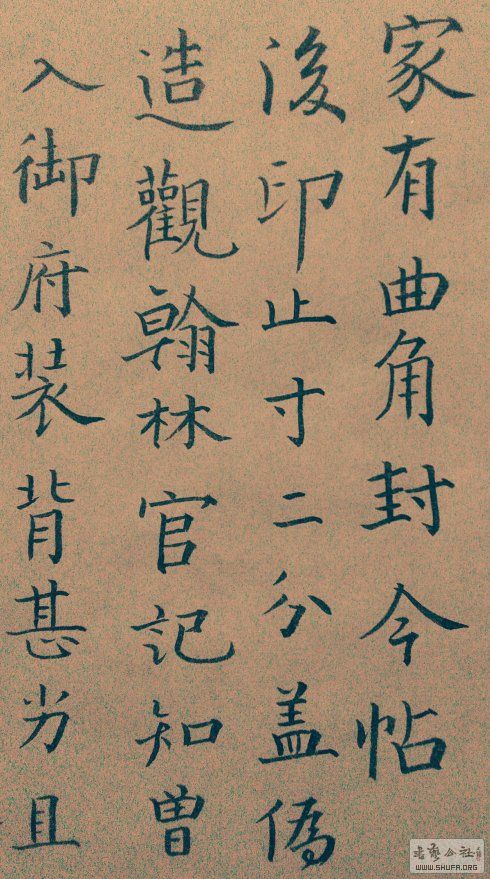 家有曲角封今帖
後印止寸二分盖僞
造觀翰林官記知曽
入御府装背甚劣且
WWW.SHUFA.ORG